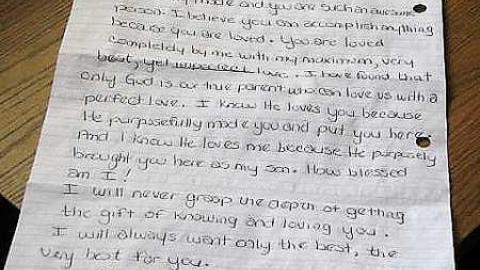 made and you are such an awesome
person. I believe you can accomplish anything
because you are loved. You are loved
completely by me with my maximum, very
best, yet imperfect love. I have found that
only God is our true parent who can love us with a
perfect love. I know He loves you because
He purposefully made you and put you here.
And I know He loves me because He purposely
brought you here as my son. How blessed
am I!
I will never grasp the depth of getting
the gift of knowing and loving you.
I will always want only the best, the
very best for you.